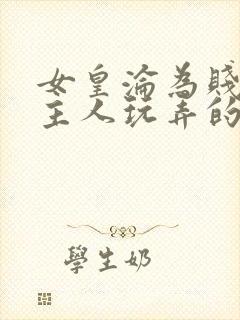 女皇淪為賤
主人玩弄的
學生奶